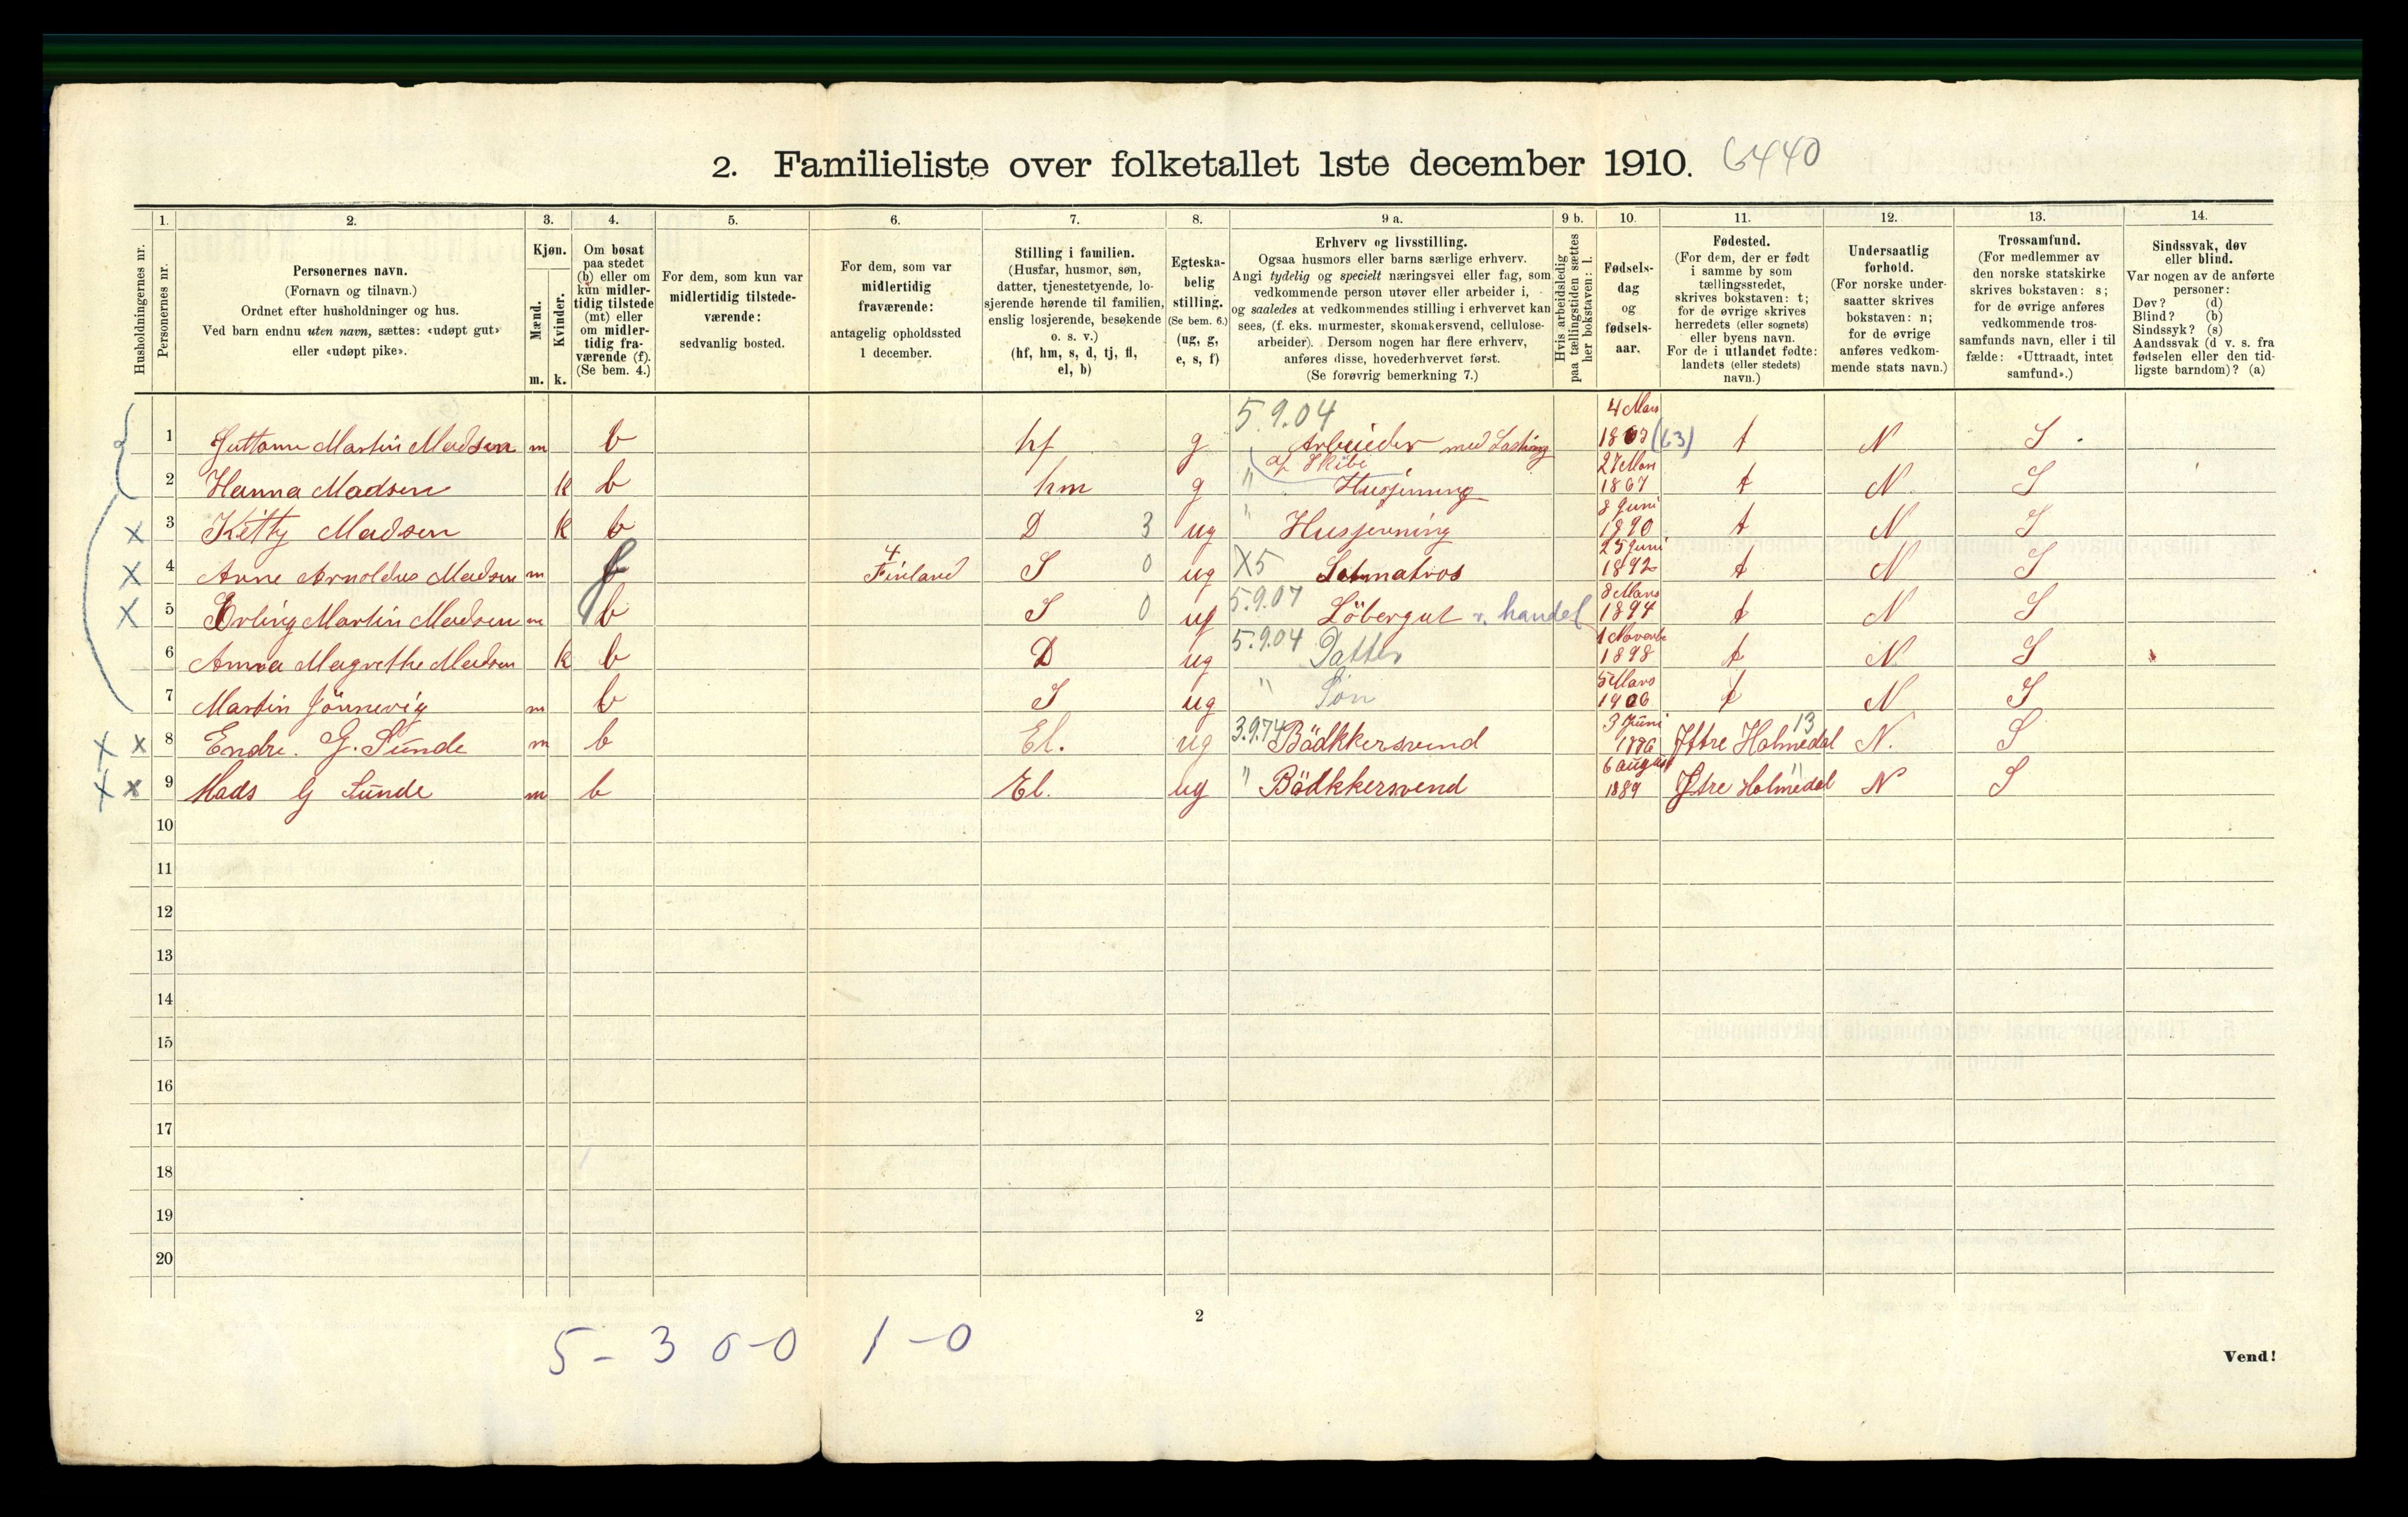 2. Familieliste over folketallet 1ste december 1910. 6440
Husholdningernes nr.
1. Personernes nr.
2. Personernes navn.
(Fornavn og tilnavn.)
Ordnet efter husholdninger og hus.
Ved barn endnu uten navn, sættes: «udøpt gut»
eller «udøpt pike».
3. Kjøn.
Mænd. m.
Kvinder. k.
4. Om bosat
paa stedet
(b) eller om
kun midler-
tidig tilstede
(mt) eller
om midler-
tidig fra-
værende (f).
(Se bem. 4.)
5. For dem, som kun var
midlertidig tilstede-
værende:
sedvanlig bosted.
6. For dem, som var
midlertidig
fraværende:
antagelig opholdssted
1 december.
7. Stilling i familien.
(Husfar, husmor, søn,
datter, tjenestetyende, lo-
sjerende hørende til familien,
enslig losjerende, besøkende
o. s. v.)
(hf, hm, s, d, tj, fl,
el, b)
8. Egteska-
belig
stilling.
(Se bem. 6.)
(ug, g,
e, s, f)
9 a. Erhverv og livsstilling.
Ogsaa husmors eller barns særlige erhverv.
Angi tydelig og specielt næringsvei eller fag, som
vedkommende person utøver eller arbeider i,
og saaledes at vedkommendes stilling i erhvervet kan
sees, (f. eks. murmester, skomakersvend, cellulose-
arbeider). Dersom nogen har flere erhverv,
anføres disse, hovederhvervet først.
(Se forøvrig bemerkning 7.)
9 b. Hvis arbeidsledig
paa tællingstiden sættes
her bokstaven: l.
10. Fødsels-
dag
og
fødsels-
aar.
11. Fødested.
(For dem, der er født
i samme by som
tællingsstedet,
skrives bokstaven: t;
for de øvrige skrives
herredets (eller sognets)
eller byens navn.
For de i utlandet fødte:
landets (eller stedets)
navn.)
12. Undersaatlig
forhold.
(For norske under-
saatter skrives
bokstaven: n;
for de øvrige
anføres vedkom-
mende stats navn.)
13. Trossamfund.
(For medlemmer av
den norske statskirke
skrives bokstaven: s;
for de øvrige anføres
vedkommende tros-
samfunds navn, eller i til
fælde: «Uttraadt, intet
samfund».)
14. Sindssvak, døv
eller blind.
Var nogen av de anførte
personer:
Døv? (d)
Blind? (b)
Sindssyk? (s)
Aandssvak (d v. s. fra
fødselen eller den tid-
ligste barndom)? (a)
5.9.04 4 Mars
1 Martin Madsen m b hf g Arbeider med Lastning (63) t N S
af Skibe
27 Mars
2 Hanna Madsen k b hm g " Husjerning 1867 t N S
8 Juni
x 3 Kitty Madsen k b D 3 ug " Husjerning 1890 t N S
25 Juni
4
x 4 Arne Arnoldus Madsen m f Finland S 0 ug X5 matros 1892 t N S
8 Mars
x 5 Erling Martin Madsen m b S 0 ug 5.9.07 Löbergut v. handel 1894 t N S
1 Novenbr
6 Anna Magrethe Madsen k b D ug 5.9.04 Datter 1898 t N S
5 Mars
7 Martin Jönnevig m b S ug " Søn 1906 t N S
3 Juni 13
x x 8 Endre. G. Sunde m b El. ug 3.9.74 Bödkkersvend 1886 Ytre Holmedal N. S
6 august
x x 9 Mads G Sunde m b El. ug " Bödkkersvend 1889 Ytre Holmedal " N S
10
11
12
13
14
15
16
17
18
19
20
2
5 - 3 0-0 1-0
Vend!